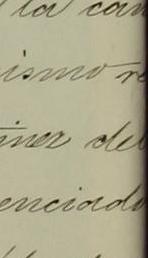 la can
ismo re
iner del
enciado